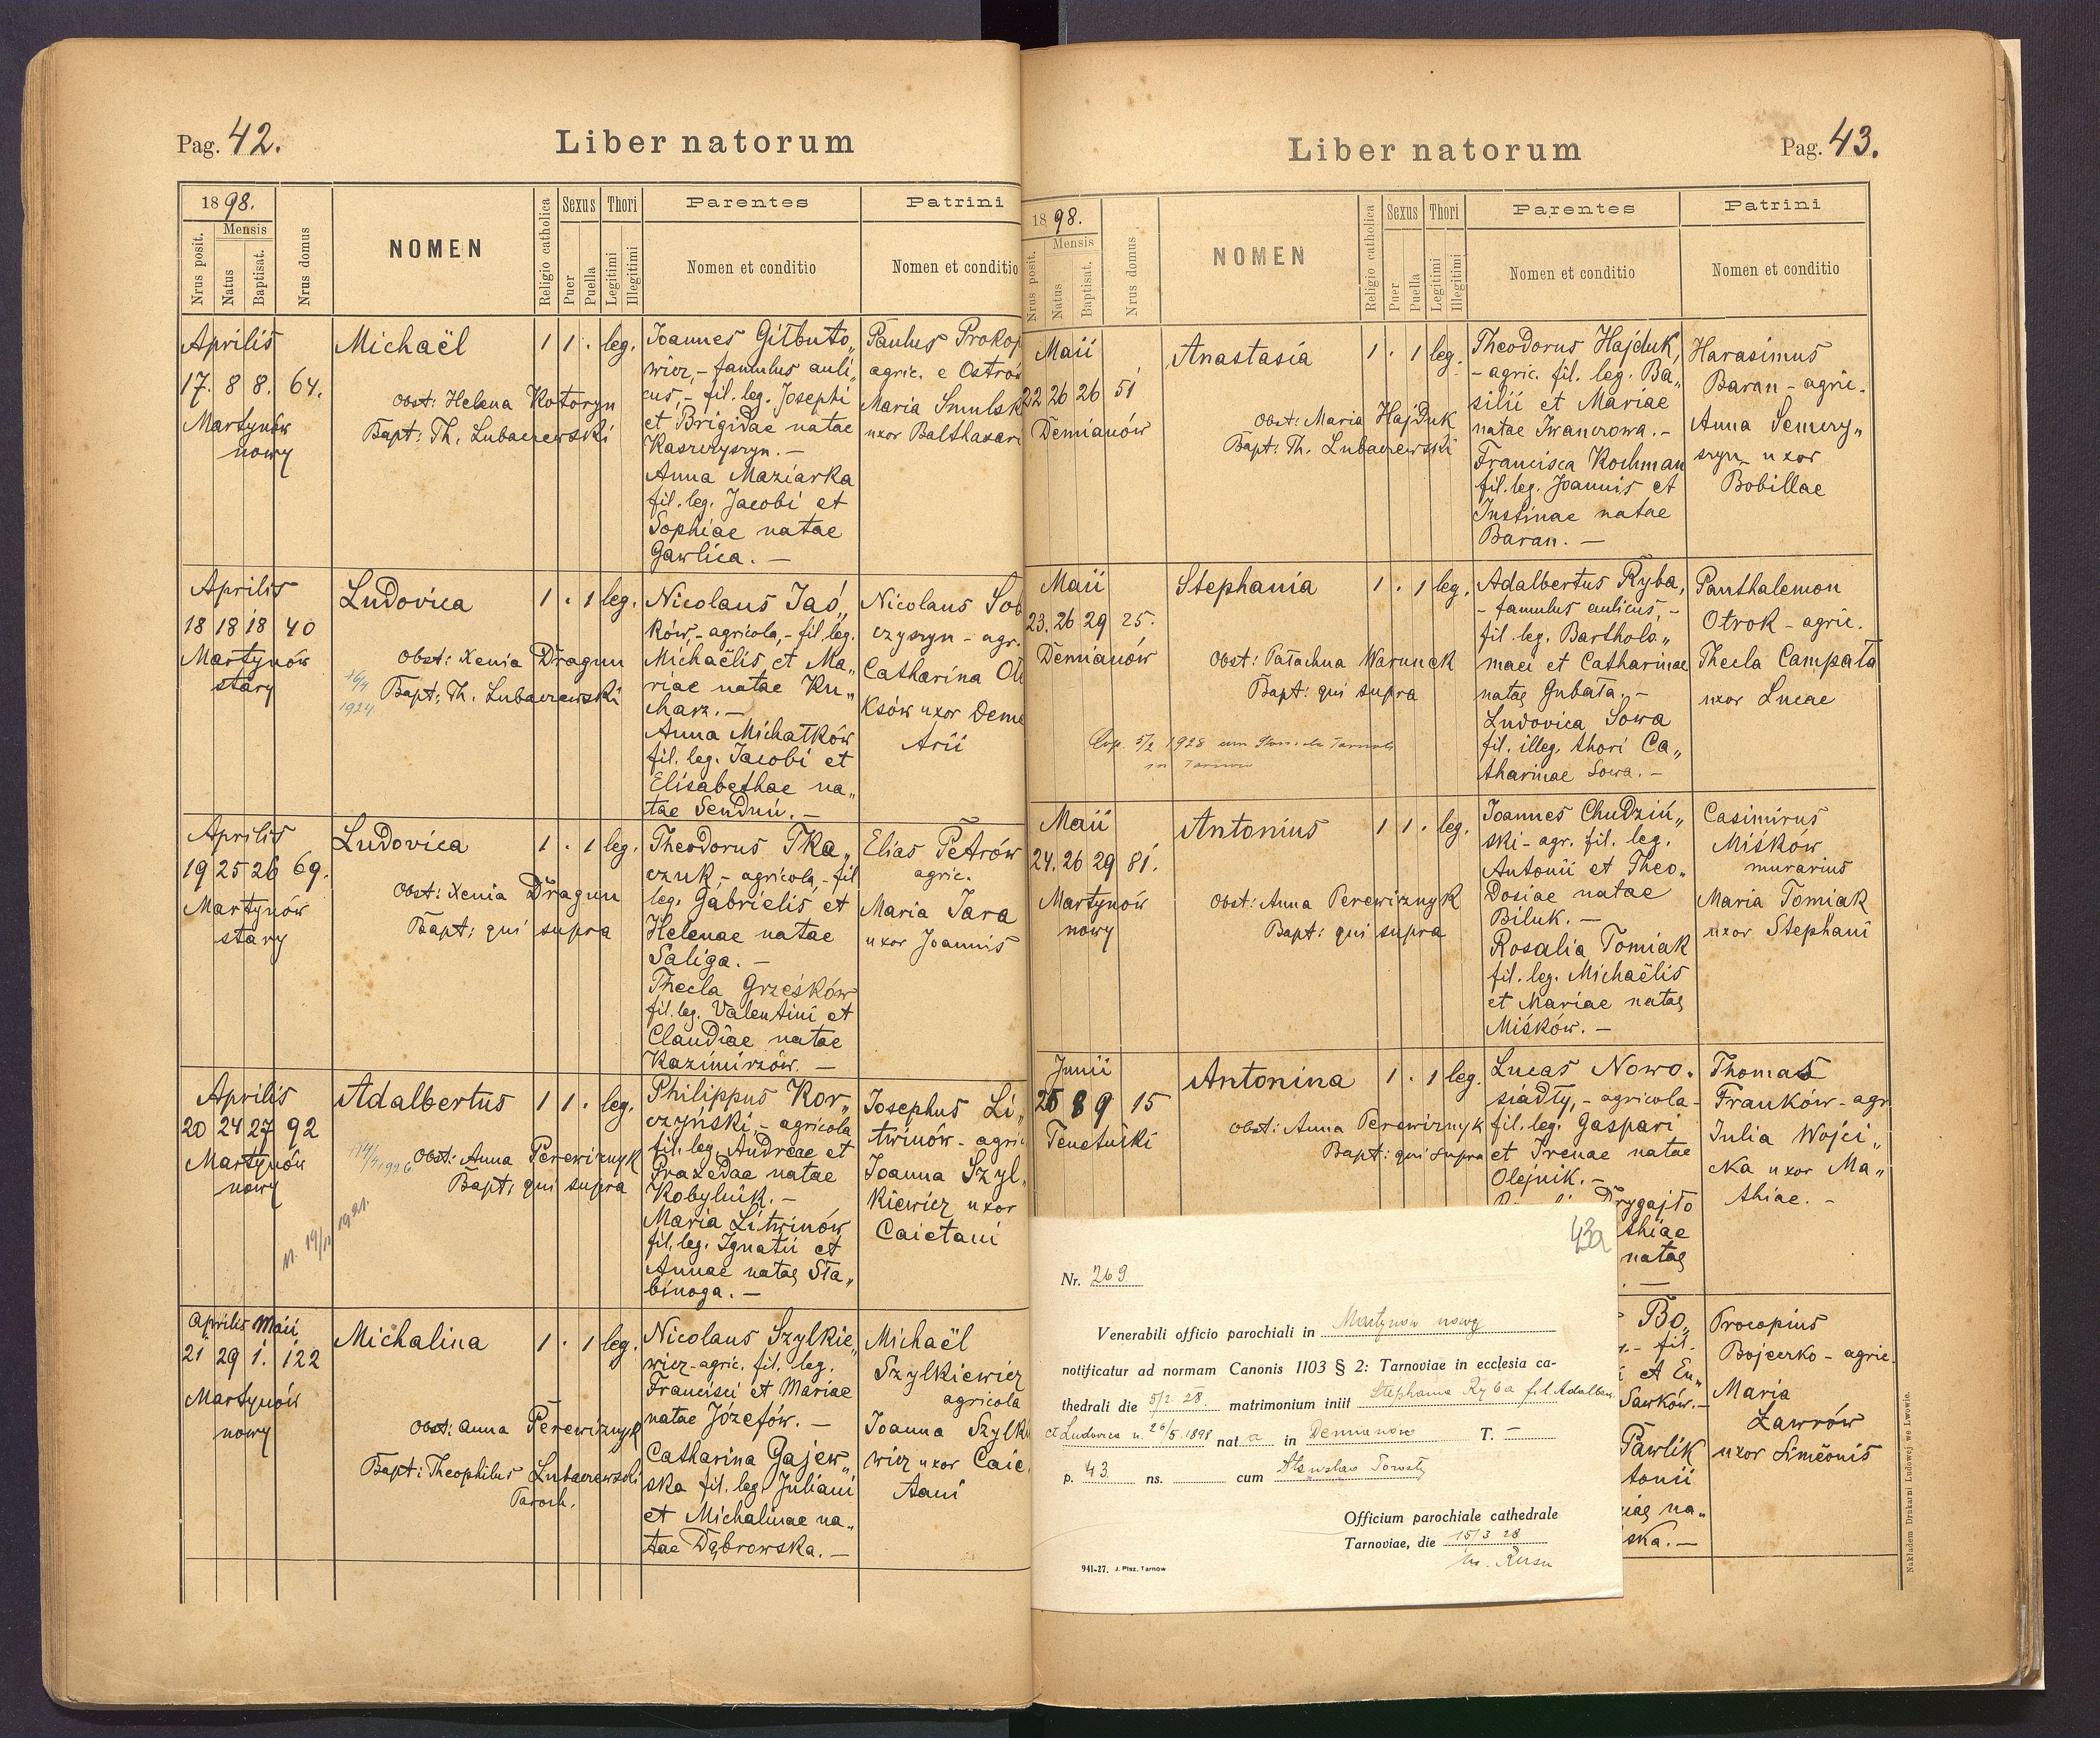 Pag. 42.
Liber natorum
1898.
Nrus posit.
Mensis
Natus
Baptisat.
Nrus domus
NOMEN
Religio catholica
Sexus
Puer
Puella
Thori
Legitimi
Illegitimi
Parentes
Nomen et conditio
Patrini
Nomen et conditio
Aprilis
17. 8 8. 64.
Martynów
nowy
Michaël
Obst: Helena Kotoryn
Bapt: Th. Lubaczewski
1 1 . leg.
Joannes Gilbuto„
wicz, - famulus auli„
cus, - fil. leg. Josephi
et Brigidae natae
Kaszczyszyn. —
Anna Maziarka
fil. leg. Jacobi et
Sophiae natae
Gawlica. —
Paulus Prokop
agric. e Ostrów
Maria Smulsk
uxor Balthasari
Aprilis
18 18 18 40
Martynów
stary
Ludovica
Obst: Xenia Dragun
Bapt: Th. Lubaczewski
1924.
1 . 1 leg.
Nicolaus Jaś„
ków, - agricola, - fil. leg.
Michaëlis et Ma„
riae natae Ku„
charz. —
Anna Michałków
fil. leg. Jacobi et
Elisabethae na„
tae Senduń. —
Nicolaus Sob
czyszyn - agr.
Catharina Ole
ksów uxor Deme
trii
Aprilis
19 25 26 69.
Martynów
stary
Ludovica
Obst: Xenia Dragun
Bapt: qui supra
1 . 1 leg.
Theodorus Tka„
czuk, - agricola, - fil
leg. Gabrielis et
Helenae natae
Saliga. —
Thecla Grześków
fil. leg. Valentini et
Claudiae natae
Kazimirzów. —
Elias Petrów
agric.
Maria Jara
uxor Joannis
Aprilis
20 24 27 92
Martynów
nowy
Adalbertus
Obst: Anna Perewiznyk
Bapt: qui supra
1 1 . leg.
Philippus Kor„
czyński, - agricola
fil. leg. Andreae et
Praxedae natae
Kobylnik. —
Maria Litwinów
fil. leg. Ignatii et
Annae natae Sła„
binoga. —
Josephus Li„
twinów - agric
Joanna Szyl„
kiewicz uxor
Caietani
Aprilis Maii
21 29 1. 122
Martynów
nowy
Michalina
Obst: Anna Perewiznyk
Bapt: Theophilus Lubaczewski
Paroch.
1 . 1 leg.
Nicolaus Szylkie„
wicz - agric. fil. leg.
Francisci et Mariae
natae Józefów. —
Catharina Gajew„
ska fil. leg. Juliani
et Michalinae na„
tae Dąbrowska. —
Michaël
Szylkiewicz
agricola
Joanna Szylk
wicz uxor Caie
tani
Liber natorum
Pag. 43.
1898.
Nrus posit.
Mensis
Natus
Baptisat.
Nrus domus
NOMEN
Religio catholica
Sexus
Puer
Puella
Thori
Legitimi
Illegitimi
Parentes
Nomen et conditio
Patrini
Nomen et conditio
Maii
22 26 26 51
Demianów
Anastasia
Obst: Maria Hajduk
Bapt: Th. Lubaczewski
1 . 1 leg.
Theodorus Hajduk,
- agric. fil. leg. Ba„
silii et Mariae
natae Iwanczowa. —
Francisca Kochman
fil. leg. Joannis et
Justinae natae
Baran. —
Harasimus
Baran - agric.
Anna Semczy„
szyn uxor
Bobillae
Maii
23. 26 29 25.
Demianów
Stephania
Obst: Palachna Warunek
Bapt: qui supra
Cop. 5/2 1928 cum
in Tarnow
1 . 1 leg.
Adalbertus Ryba,
- famulus aulicus, -
fil. leg. Bartholo„
maei et Catharinae
natae Gubała. -
Ludovica Sowa
fil. illeg. thori Ca„
tharinae Sowa. —
Panthalemon
Otrok - agric.
Thecla Campała
uxor Lucae
Maii
24. 26 29 81.
Martynów
nowy
Antonius
Obst: Anna Perewiznyk
Bapt: qui supra
1 1 . leg.
Joannes Chudziń„
ski - agr. fil. leg.
Antonii et Theo„
dosiae natae
Biluk. —
Rosalia Tomiak
fil. leg. Michaëlis
et Mariae natae
Miśków. —
Casimirus
Miśków
murarius
Maria Tomiak
uxor Stephani
Junii
25 8 9 15
Tenetniki
Antonina
Obst: Anna Perewiznyk
Bapt: qui supra
1 . 1 leg.
Lucas Nowo„
siadły, - agricola -
fil. leg. Gaspari
et Irenae natae
Olejnik. —
Drygajło
thiae
natae
Thomas
Franków - agr
Julia Wojci„
cka uxor Ma„
thiae. -
Bo„
- fil.
et En„
Sawków. —
Pawlik
tonii
niae na„
ska. —
Procopius
Bojeczko - agric.
Maria
Ławrów
uxor Simeonis
43a
Nr. 269
Venerabili officio parochiali in Martynow nowy
notificatur ad normam Canonis 1103 § 2: Tarnoviae in ecclesia ca-
thedrali die 5/2. 28. matrimonium iniit Stephania Ryba fil. Adalber.
et Ludovica n. 26/5. 1898 nat a in Demianow T. —
p. 43 ns. cum
Officium parochiale cathedrale
Tarnoviae, die 15/3 28
941-27. J. Pisz, Tarnów
Nakładem Drukarni Ludowej we Lwowie.